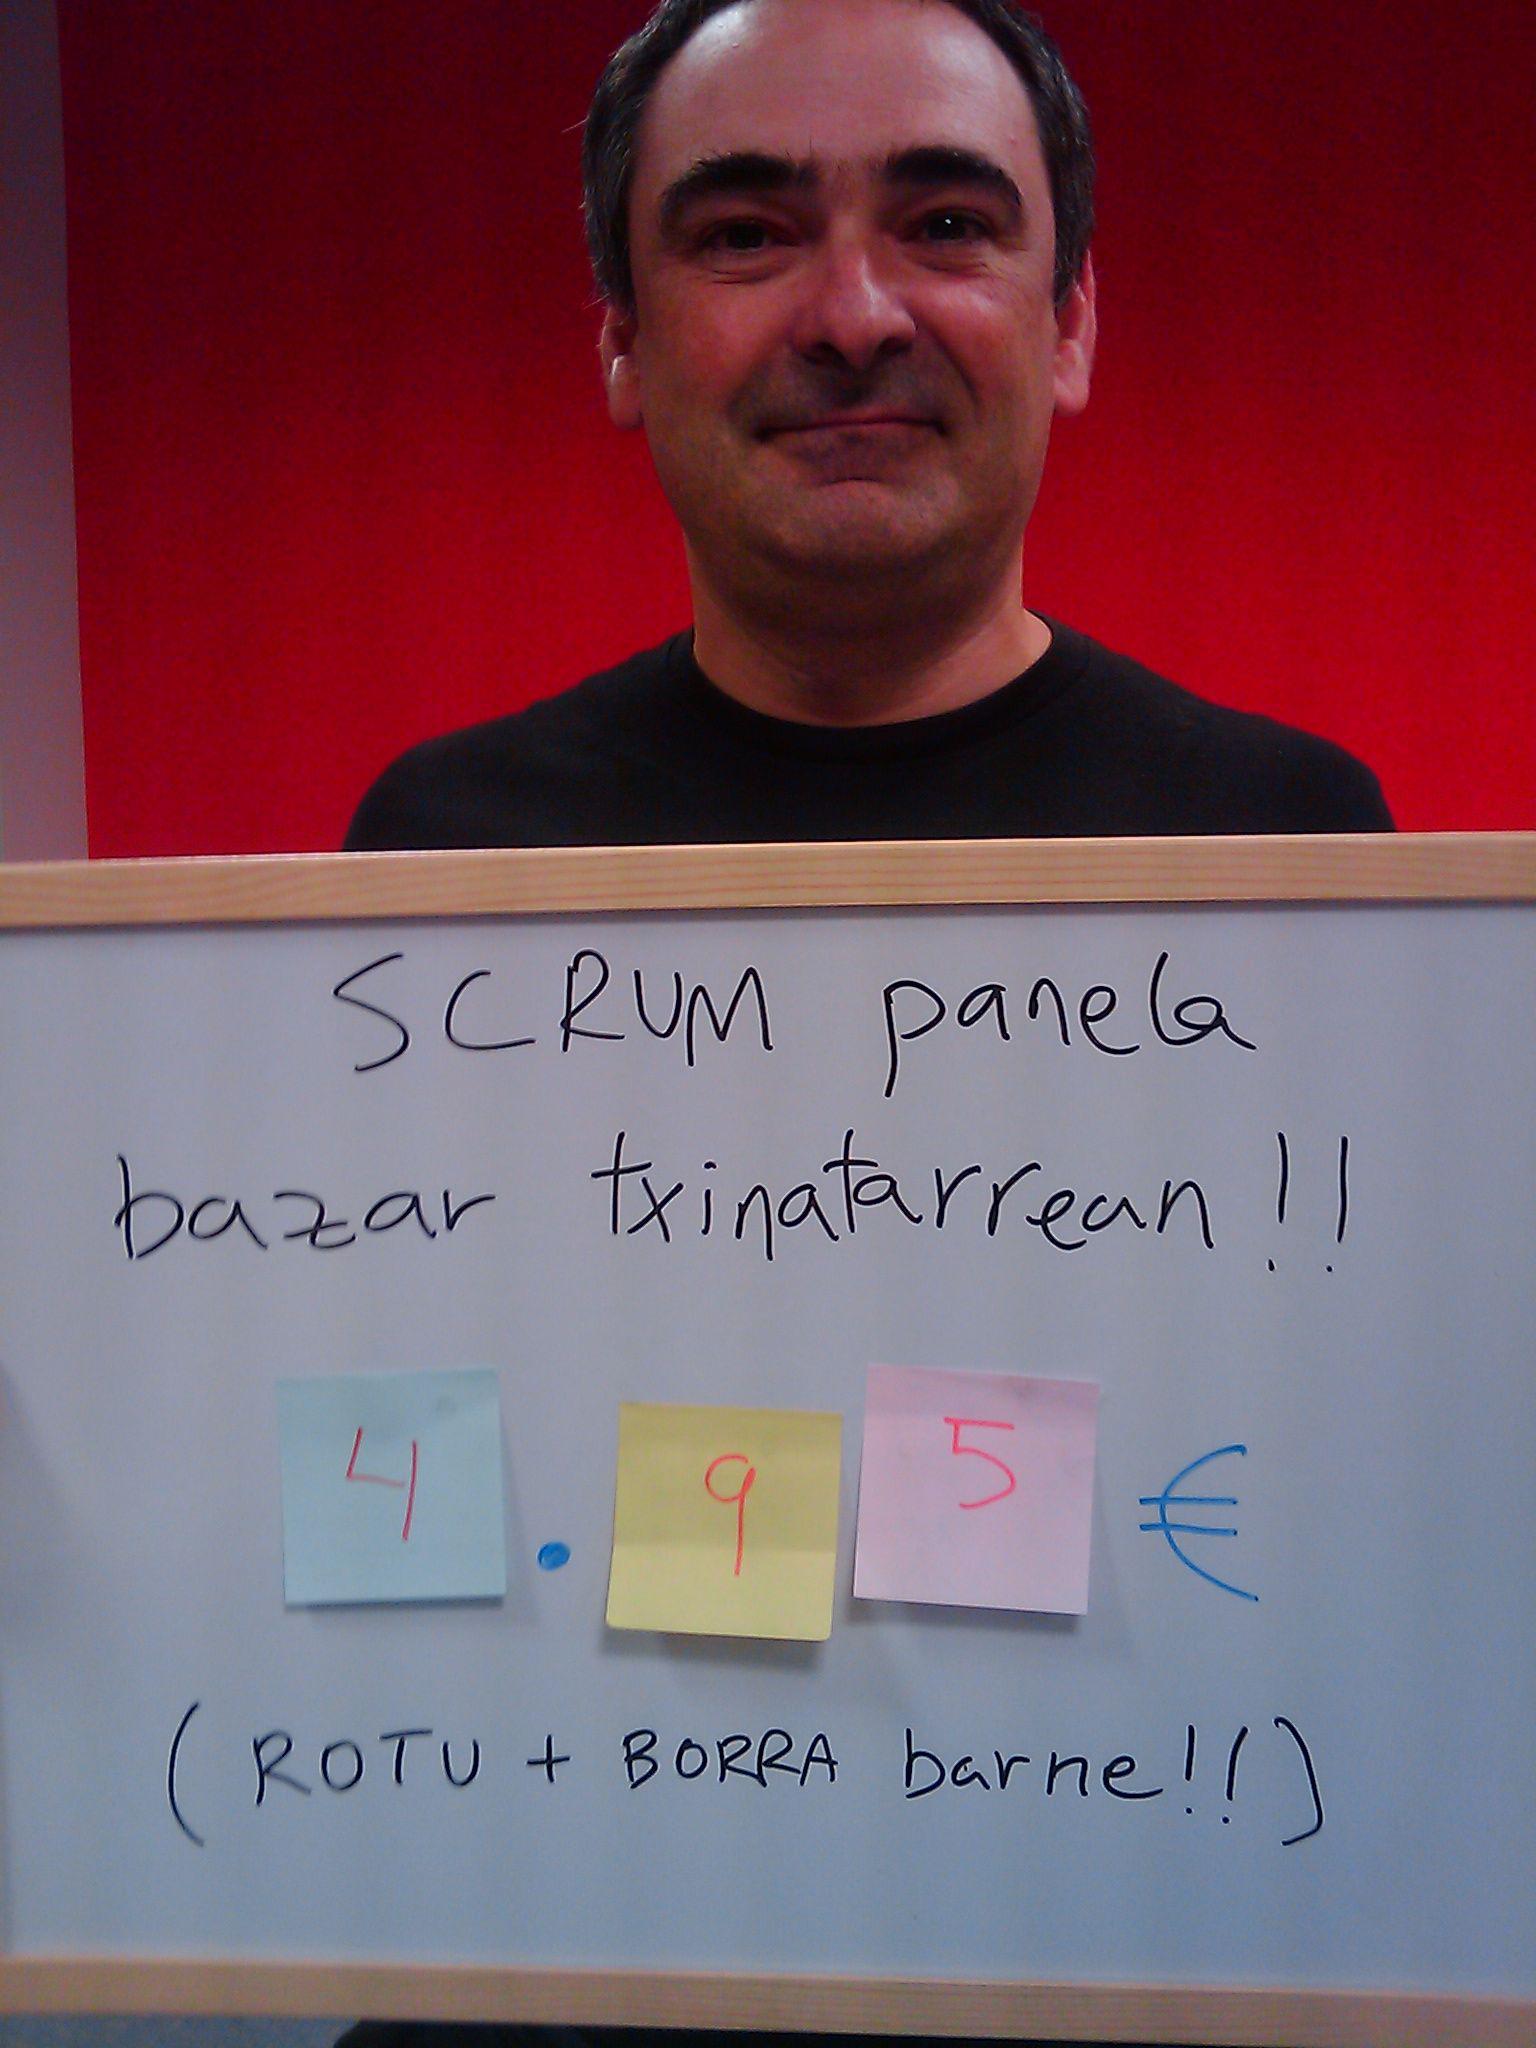 SCRUM panela
bazar txinatarrean!!
4.95€
(ROTU + BORRA barne!!)